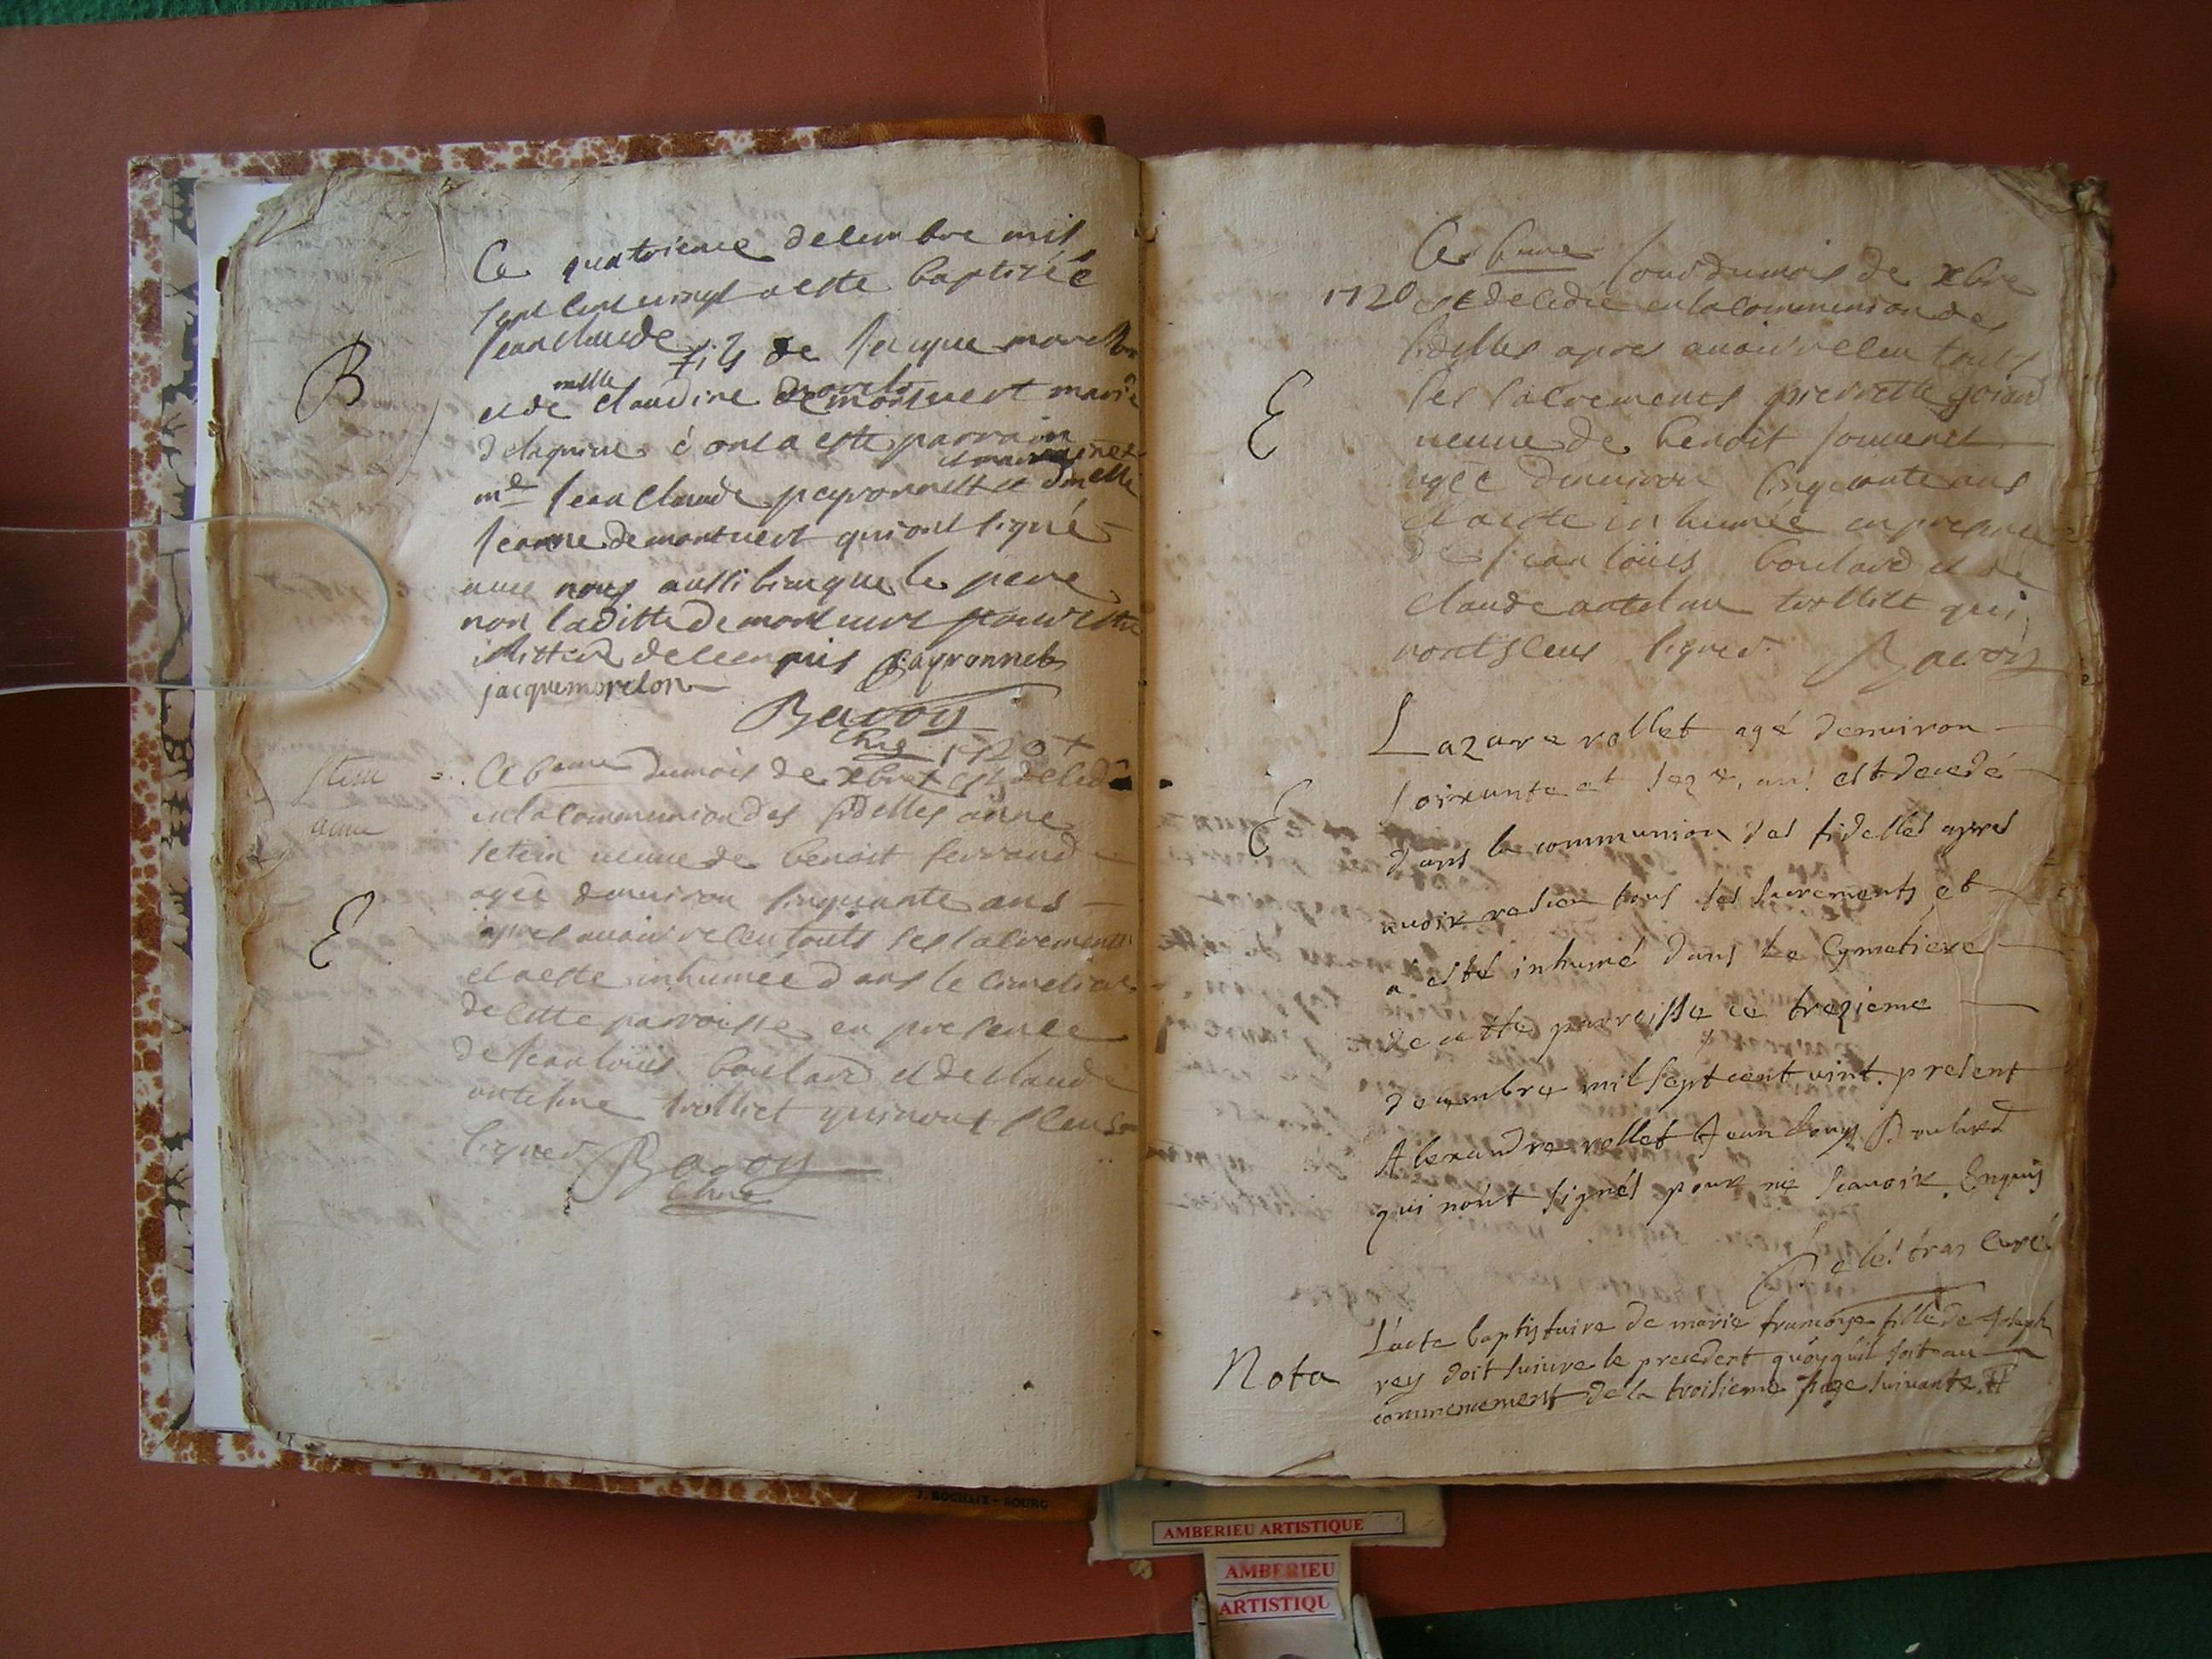 Ce quatrieme decembre mil
sept cent vingt a este baptizée
B
jean claude fils de jacque morelon
et de melle claudine demontuert mariée
parrain
md jean claude peyronnet et dmelle
jeanne demontuert qui ont signé
avec nous aussi bien que le pere
non laditte demontuert pour estre
illitteré de ce enquis Peyronnet
jacquemorelon
Bavoy
Curé 1720
Setein
anne
Ce 6eme du mois de xbre est decedé
en la communion des fidelles anne
setein veuve de benoit ferrand
agée denuiron cinquante ans
E
apres avoir receu touts ses sacrements
et a este inhumée dans le cimetiere
de cette parroisse en presence
de jean loüis boulard et de claude
antelme trolliet qui n'ont sceu
signer Bavoy
Curé
Ce 6eme jour du mois de xbre
1720 est decedée en la communion des
fidelles apres avoir receu touts
E
ses sacrements pierrette goiand
veuve de benoit
agée denuiron cinquante ans
et a este inhumée en presence
de jean loüis boulard et de
claude antelme trolliet qui
n'ont sceus signer. Bavoy
Lazare rollet agé denuiron
E
soixante et seze, ans est decedé
dans la communion des fidelles apres
auoir reseu tous ses sacrements et
a esté inhumé dans le Cymetiere
de cette parroisse ce trezieme
decembre mil sept cent vint. present
Alexandre rollet Jean Louys Boulard
qui n'ont signés pour ne scauoir. Enquis
curé
L'acte baptistaire de marie francoise fille de Joseph
Nota
rey doit suiure le precedent quoyquil soit au
commencement de la troisieme page suiuante. #
J. ROCHAIX - BOURG
AMBERIEU ARTISTIQUE
AMBERIEU
ARTISTIQU